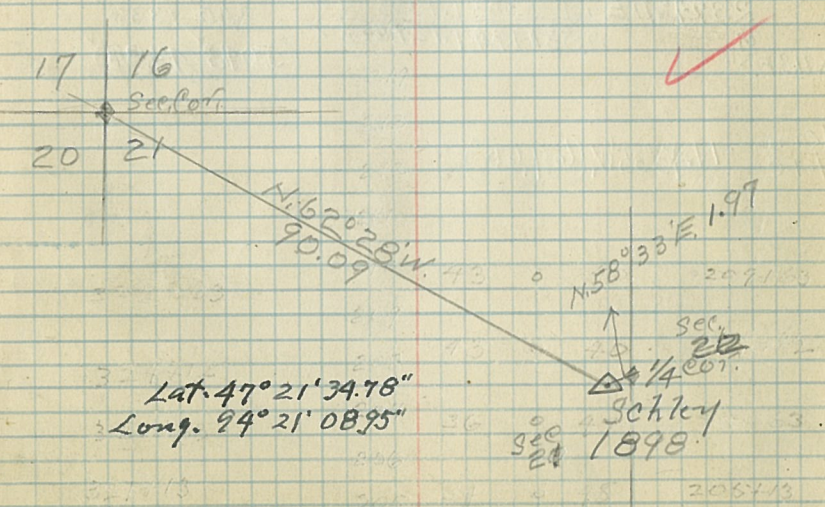 17 16
Sec. Cor.
20 21
N. 62° 28' W.
90.09
N. 58° 33' E. 1.97
Sec.
1/4 Cor.
Schley
1898
Sec
21
Lat. 47° 21' 34.78"
Long. 94° 21' 08.95"